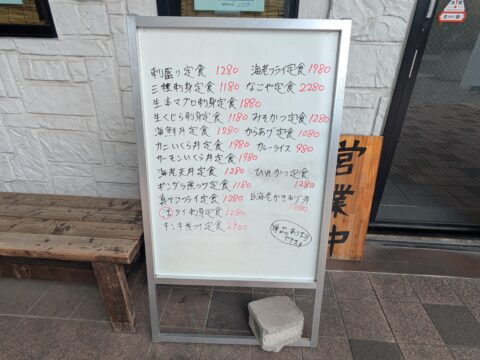 刺盛り定食 1280
三種刺身定食 1180
生本マグロ刺身定食 1880
生くじら刺身定食 1180
海鮮丼定食 1280
カニいくら丼定食 1980
サーモンいくら丼定食 1980
海老天丼定食 1280
ギンダラ煮つけ定食 1180
真アジフライ定食 1280
タイ刺身定食 1280
キンキ煮つけ定食 2900
海老フライ定食 1980
なごや定食 2280
みそかつ定食 1280
からあげ定食 1080
カレーライス 980
ひれかつ定食
1280
白海老かきあげ丼
1280
単品あります
できます
営業中